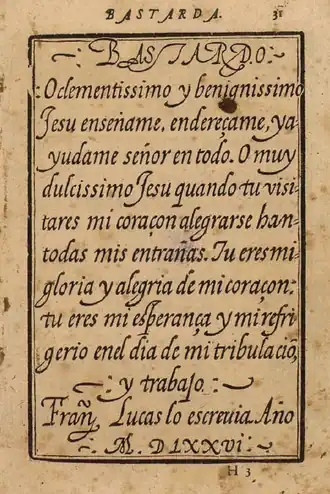 BASTARDA. 31
BASTARDO
O clementissimo y benignissimo
Jesu enseñame, endereçame, ya
yudame señor en todo. O muy
dulcissimo Jesu quando tu visi
tares mi coraçon alegrarse han
todas mis entrañas. Tu eres mi
gloria y alegria de mi coraçon:
tu eres mi esperança y mi refri
gerio enel dia de mi tribulaciõ,
y trabajo
Frañ Lucas lo escrevia. Año
M. DLXXVI
H 3